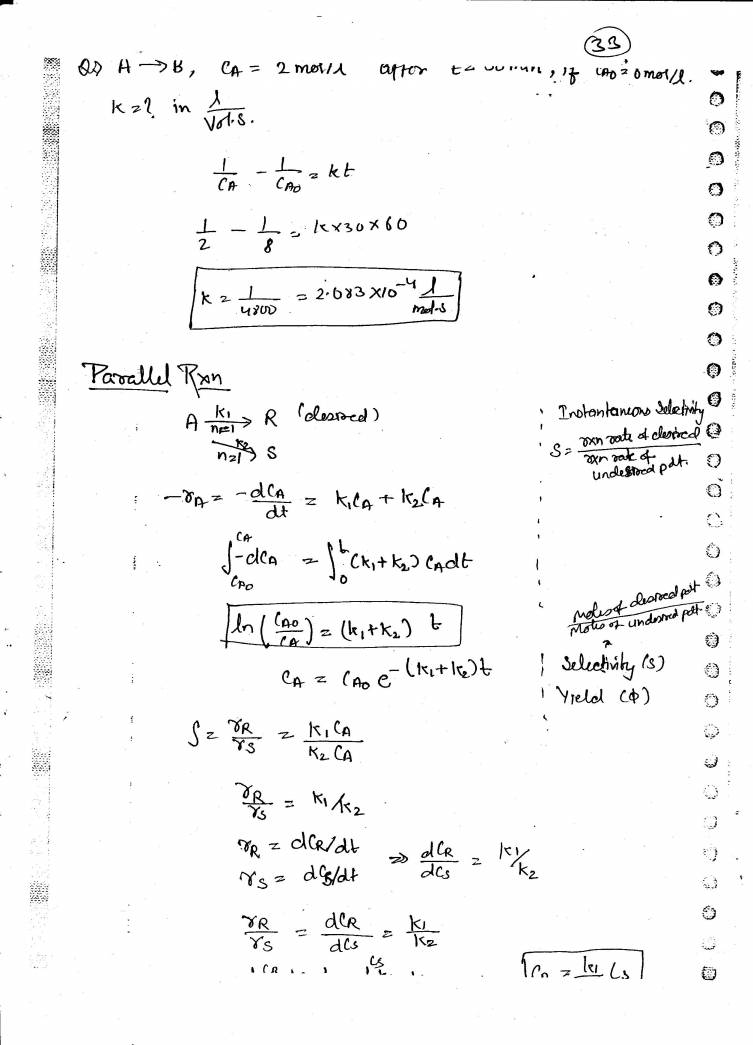 33
Q) A → B, CA = 2 mol/l after t= min, if CAO = 8 mol/l.
k = ? in l/Vol.S.
1/CA - 1/CAO = kt
1/2 - 1/8 = k×30×60
k = 1/4800 = 2.083 × 10^-4 l/mol-s
Parallel Rxn
A k1→ n=1 R (desired)
k2→ n=1 S
Instantaneous Selectivity
S = rxn rate of desired / rxn rate of undesired pdt.
-rA = -dCA/dt = k1CA + k2CA
∫CAO^CA -dCA = ∫0^t (k1+k2) CA dt
ln (CAO/CA) = (k1+k2) t
CA = CAO e^-(k1+k2)t
Moles of desired pdt / Moles of undesired pdt
Selectivity (S)
Yield (Φ)
S = rR/rS = k1CA/k2CA
rR/rS = k1/k2
rR = dCR/dt
rS = dCS/dt
⇒ dCR/dCS = k1/k2
rR/rS = dCR/dCS = k1/k2
= k1 CS